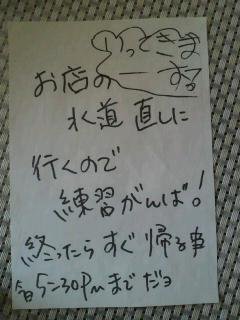 いっときま
お店の一する
水道 直しに
行くので
練習がんば!
終ったらすぐ帰る事
5-30Pmまでだョ